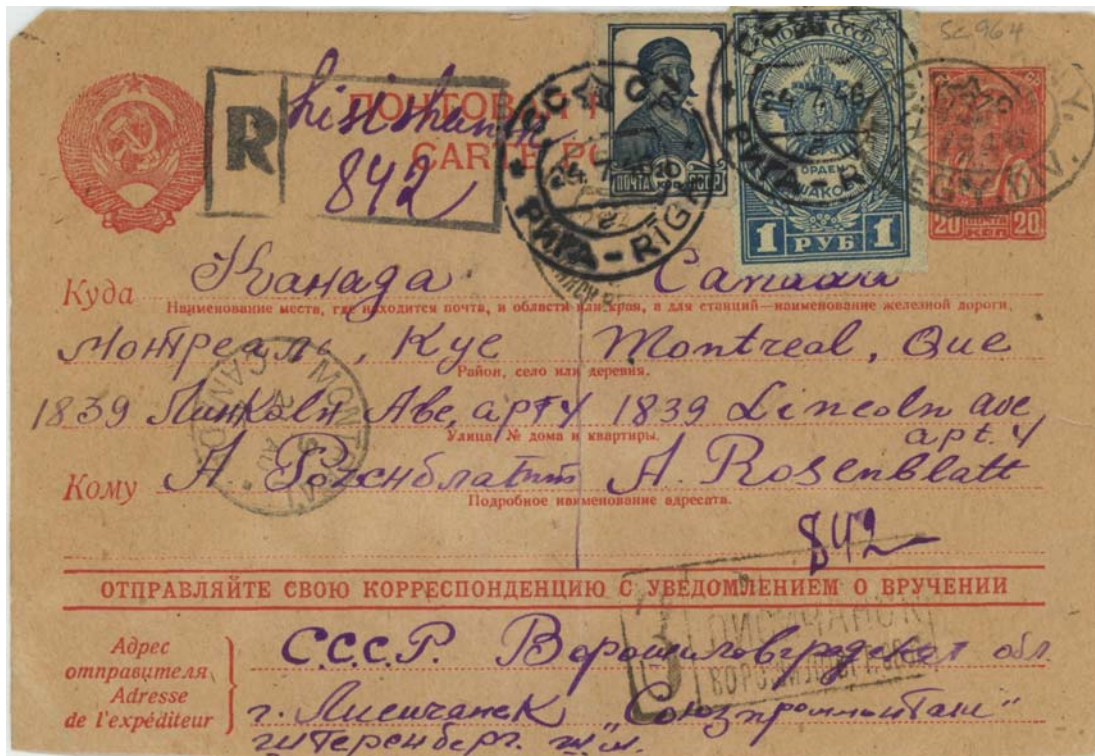 Sc 964
R
Lisichansk
842
ПОЧТОВАЯ
CARTE PO
СССР
РИГА - RĪGA
ПОЧТА 20 КОП СССР
ПОЧТА СССР
24 7 46
РИГА
ОРДЕН
УШАКОВА
1 РУБ 1
20 ПОЧТА 20
КОП
REGY. DIV.
Куда Канада Canada
Наименование места, где находится почта, и области или края, а для станций—наименование железной дороги.
Монтреаль, Куе Montreal, Que
Район, село или деревня.
1839 Линколн Аве, арт 4 1839 Lincoln ave,
apt. 4
Улица, № дома и квартиры.
MONTREAL
CANADA
Кому А. Розенблатт A. Rosenblatt
Подробное наименование адресата.
842
ОТПРАВЛЯЙТЕ СВОЮ КОРРЕСПОНДЕНЦИЮ С УВЕДОМЛЕНИЕМ О ВРУЧЕНИИ
З ЛИСИЧАНСК
Адрес
отправителя
Adresse
de l'expéditeur
С.С.С.Р. Ворошиловградская обл.
г. Лисичанск „Союзпроммонтаж"